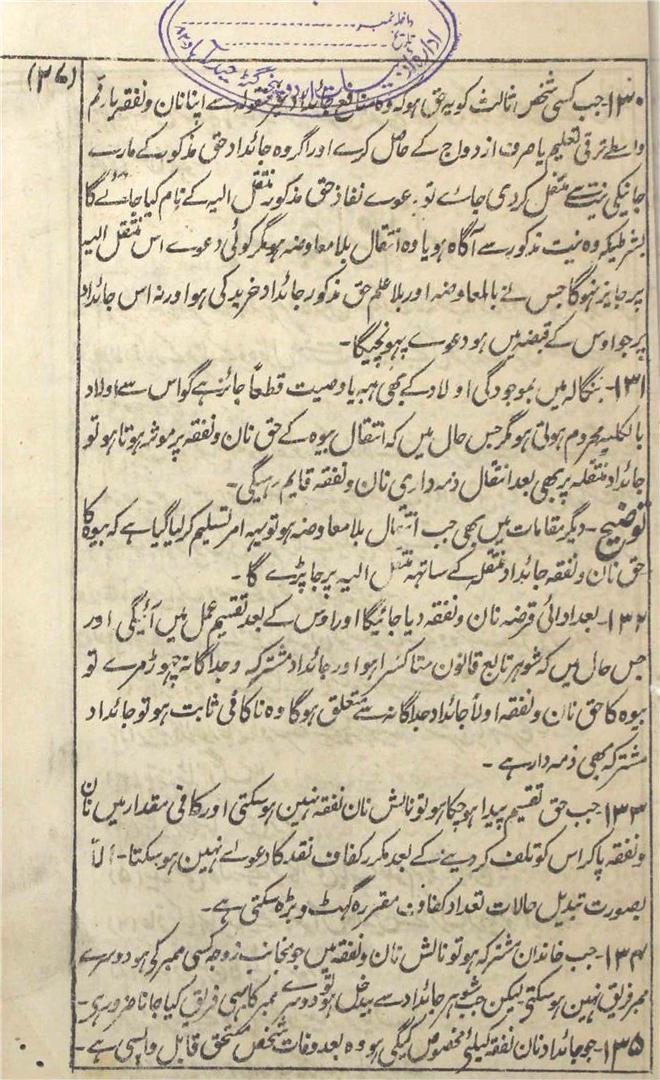 داخلہ نمبر
تاریخ
(۳۷)
۱۳۰۔ جب کسی شخص ثالث کو یہ حق ہو کہ وہ منافع جائداد غیر منقولہ سے اپنا نان و نفقہ یا رقم
واسطے ترقی تعلیم یا صرف ازدواج کے حاصل کرے اور اگر وہ جائداد حق مذکور کے مارے
جانیکی نیت سے منتقل کردی جاے تو دعوے نفاذ حق مذکور منتقل الیہ کے نام کیا جائے گا
بشرطیکہ وہ نیت مذکور سے آگاہ ہو یا وہ انتقال بلا معاوضہ ہو مگر کوئی دعوے اس منتقل الیہ
پر جایز نہوگا جس نے بالمعاوضہ اور بلا علم حق مذکور جائداد خرید کی ہو اور نہ اس جائداد
پر جو اوس کے قبضہ میں ہو دعوے پہونچیگا۔
۱۳۱۔ بنگالہ میں بموجودگی اولاد کے بھی ہبہ یا وصیت قطعاً جائز ہے گو اس سے اولاد
بالکلیہ محروم ہوتی ہو مگر جس حال میں کہ انتقال بیوہ کے حق نان و نفقہ پر موثر ہوتا ہو تو
جائداد منتقلہ پر بھی بعد انتقال ذمہ داری نان و نفقہ قایم رہیگی۔
توضیح۔ دیگر مقامات میں بھی جب انتقال بلا معاوضہ ہو تو یہہ امر تسلیم کر لیا گیا ہے کہ بیوہ کا
حق نان و نفقہ جائداد منتقلہ کے ساتہہ منتقل الیہ پر جا پڑے گا۔
۱۳۲۔ بعد ادائی قرضہ نان و نفقہ دیا جائیگا اور اوس کے بعد تقسیم عمل میں آئیگی اور
جس حال میں کہ شوہر تابع قانون متاکسرا ہو اور جائداد مشترکہ و جداگانہ چہوڑ مرے تو
بیوہ کا حق نان و نفقہ اولاً جائداد جداگانہ سے متعلق ہوگا وہ ناکافی ثابت ہو تو جائداد
مشترکہ بھی ذمہ دار ہے۔
۱۳۳۔ جب حق تقسیم پیدا ہو چکا ہو تو نالش نان نفقہ نہین ہوسکتی اور کافی مقدار میں نان
و نفقہ پاکر اس کو تلف کر دینے کے بعد مکرر کفاف نقد کا دعوے نہین ہوسکتا۔ الّا
بصورت تبدیل حالات تعداد کفاف مقررہ گہٹ و بڑہ سکتی ہے۔
۱۳۴۔ جب خاندان مشترکہ ہو تو نالش نان و نفقہ میں جو بجانب زوجہ کسی ممبر کی ہو دوسرے
ممبر فریق نہین ہوسکتی لیکن جب شوہر جائداد سے بیدخل ہو تو دوسرے ممبر کا بھی فریق کیا جانا ضرور ہی۔
۱۳۵۔ جو جائداد نان نفقہ کیلئے مخصوص کیگئی ہو وہ بعد وفات شخص مستحق قابل واپسی ہے۔